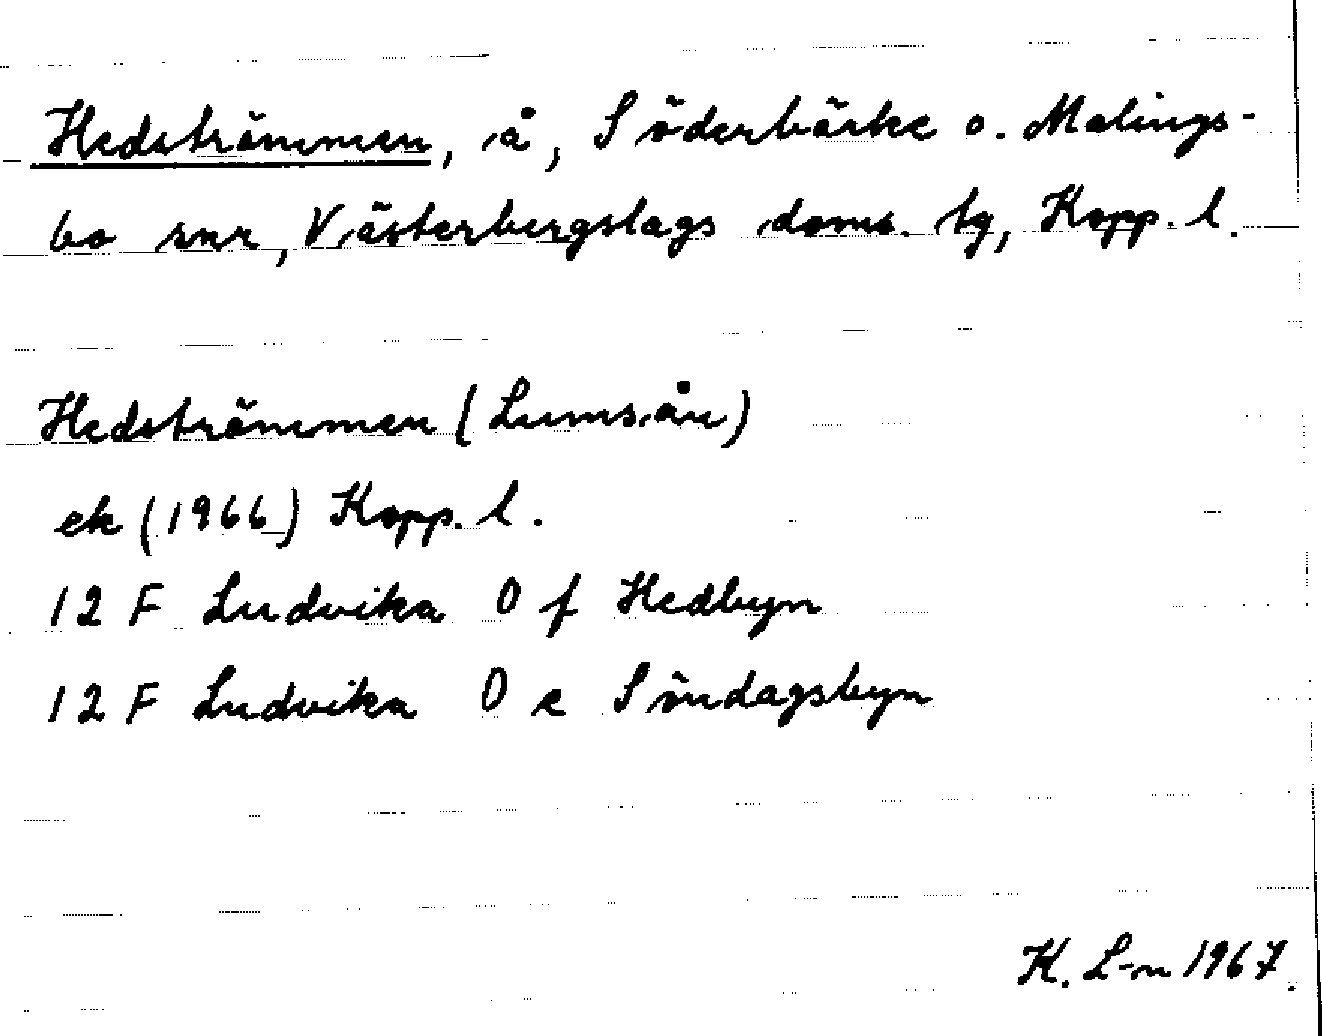 Hedströmmen, å, Söderbärke o. Malings-
bo snr, Västerbergslags doms. tg, Kopp. l.
Hedströmmen (Lumsån)
ek (1966) Kopp. l.
12 F Ludvika 0 f Hedbyn
12 F Ludvika 0 e Söndagsbyn
K. L-n 1967.